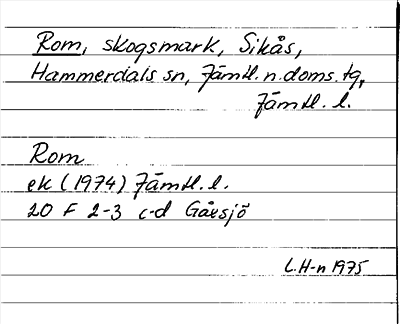 Rom, skogsmark, Sikås,
Hammerdals sn, Jämtl. n. doms. tg,
Jämtl. l.
Rom
ek (1974) Jämtl. l.
20 F 2-3 c-d Gåxsjö
L.H-n 1975